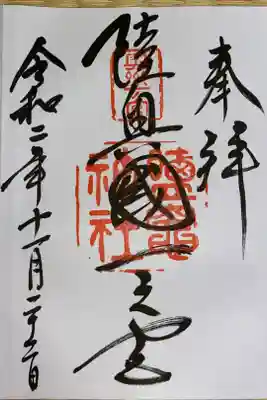 奉拝
陸奥國一之宮
鹽竈
神社
令和二年十一月二十二日